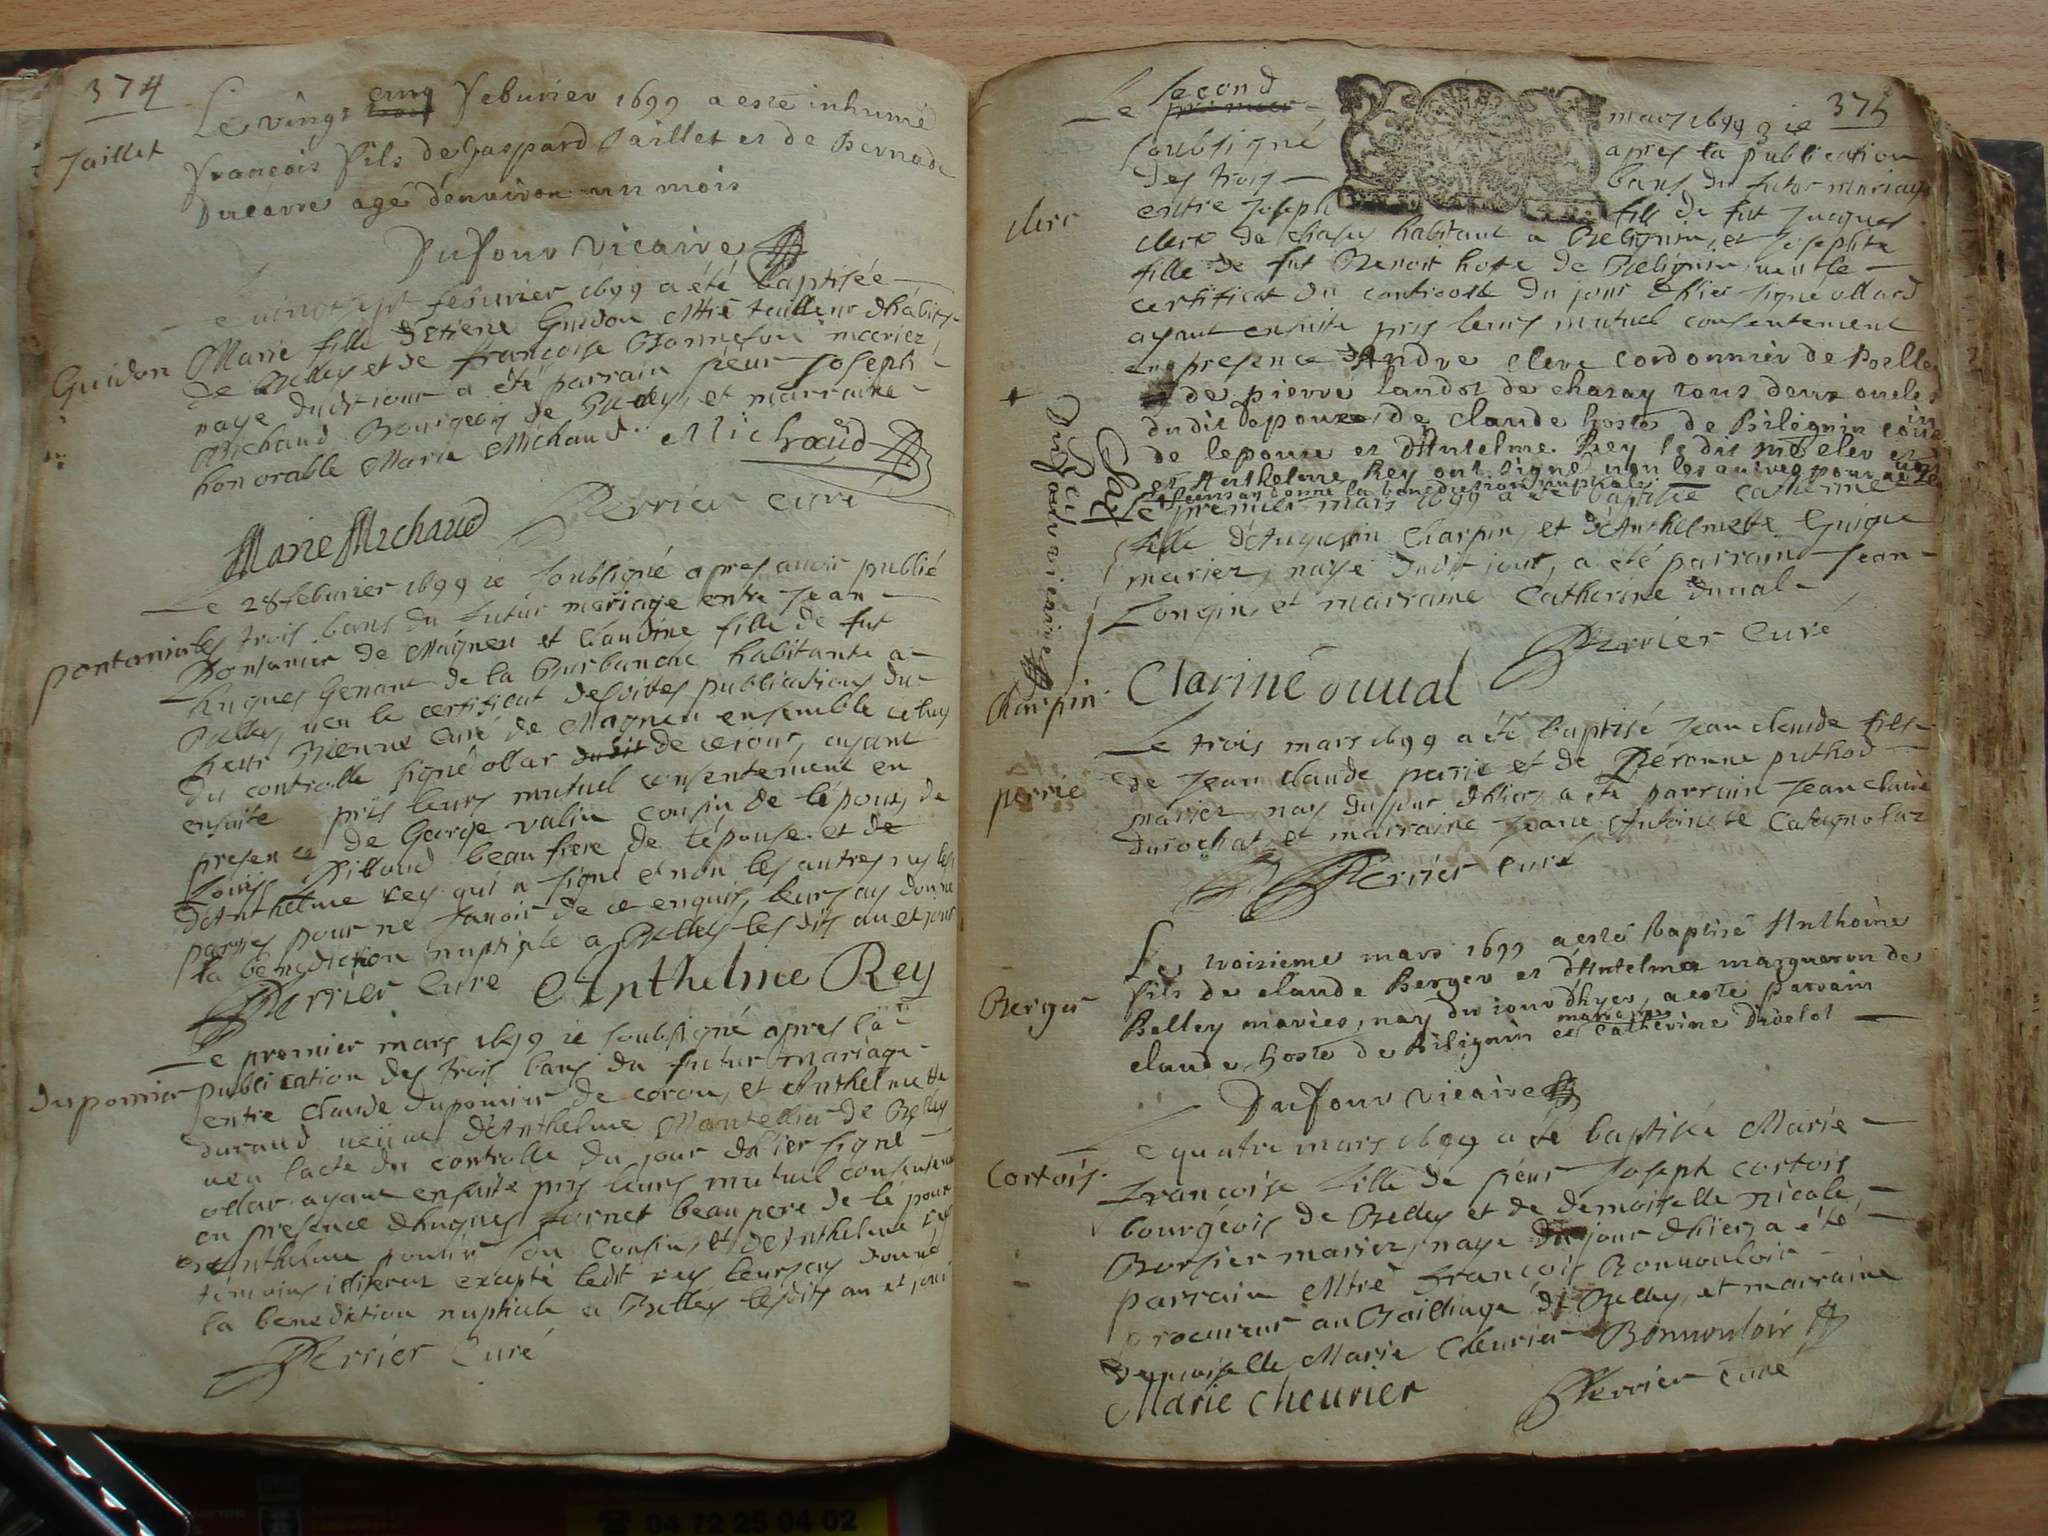 374
Jaillet
Le vingt cinq feburier 1699 a esté inhumé
françois fils de Gaspard Jaillet et de Bernade
Ducavre agé denviron un mois
Dufour vicaire
Guidon
Le vingt sept feburier 1699 a été baptisée
Marie fille d'Etiene Guidon Mtre tailleur dhabits
de Belley et de françoise Bonnefou mariez,
naye dudt jour a été parrain sieur Joseph
Michaud Bourgeois de Belley, et marraine
honorable Marie Michaud. Michaud
Perrier curé
Marie Michaud
Le 28 feburier 1699 ie soubsigné apres avoir publié
pontanier
les trois bans du futur mariage entre Jean
Pontanier de Magneu et Claudine fille de fut
hugues Genant de la Burbanche habitante a
Belley, ueu le certificat desdittes publications du
Curé de Magneu ensemble celuy
du controlle signé ollar dudit de ce jour, ayant
ensuite pris leurs mutuel consentement en
presence de George valin cousin de l'époux, de
Louis Billoud beaufrere de l'épouse et de
d'Anthelme rey qui a signé et non les autres ny les
parties pour ne savoir de ce enquis, leurs ay donné
la bénédiction nuptiale a Belley les dits an et jour
Perrier Curé Anthelme Rey
Le premier mars 1699 ie soubsigné apres la
Dupomier
publication des trois bans du futur mariage
entre Claude dupomier de coron, et Anthelmette
durand ueuue d'Anthelme Montellier de Belley
ueu lacte du controlle du jour d'hier signé
ollar ayant ensuite pris leurs mutuel consentement
en presence d'hugues furnet beaupere de l'époux
Anthelme son cousin, et d'Anthelme rey
témoins illiterez excepté ledit rey leurs ay donné
la benediction nuptiale a Belley lesdits an et jour
Perrier Curé
375
Le second premier mars 1699 ie
soubsigné apres la publication
des trois bans du futur mariage
clerc
entre Joseph fils de fut Jacques
clerc de chasey habitant a Belignin, et Josephte
fille de fut Benoit hoste de Belignin ueu le
certificat du controolle du jour d'hier signé ollard
ayant ensuite pris leurs mutuel consentement
en presence d'Andre clerc cordonnier de Belley
de pierre landoz de chasay tous deux oncles
dudit epoux, de claude hoste de Bilignin cousin
de lepouse et d'Antelme Rey ledit
et Anthelme Rey ont signé non les autres pour
leurs ay donné la benediction nuptiale
Dufour vicaire
Le premier mars 1699 a été baptisée Catherine
fille d'Augustin Charpin, et d'Anthelmete Guigue
mariez, naye dudit jour, a été parrain Jean
Longin, et marraine Catherine duual
Perrier Curé
Charpin
Clariné duual
Le trois mars 1699 a été baptisé Jean claude fils
perrié
de Jean claude perrié et de Péronne puthod
mariez nay du jour d'hier, a été parrain Jean Claude
durochat, et marraine Jeane Antoinete
Perrier Curé
Berger
Le troisieme mars 1699 a esté baptisé Anthoine
fils de claude Berger et d'Antelma margueron de
Belley mariés, nay du iour d'hyer, a esté parrain
claude hoste de Bilignin et marraine Catherine Divelot
Dufour vicaire
Cortois
Le quatre mars 1699 a été baptisée Marie
françoise fille de sieur Joseph cortois
bourgeois de Belley et de demoiselle nicole
Borsier mariez, naye du jour d'hier, a été
parrain Mtre françois Bonuouloir
procureur au Bailliage de Belley, et marraine
Demoiselle Marie Cheurier Bonuouloir
Marie cheurier Perrier curé
04 72 25 04 02